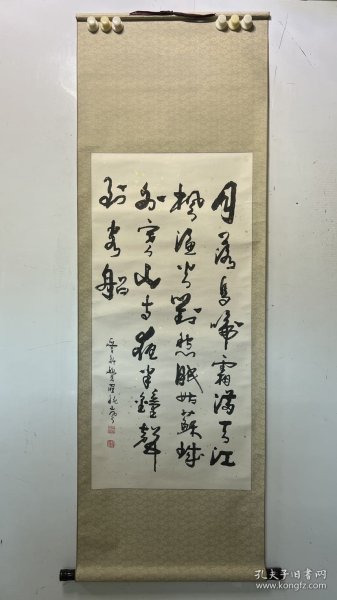 月落烏啼霜滿天江
楓漁火對愁眠姑蘇城
外寒山寺夜半鐘聲
到客船
孔夫子旧书网
www.kongfz.com